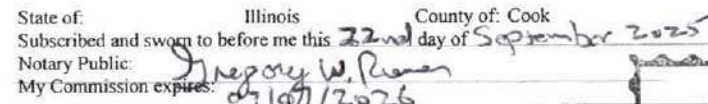 State of: Illinois County of: Cook
Subscribed and sworn to before me this 22nd day of September 2025
Notary Public: Gregory W.
My Commission expires: 07/07/2026